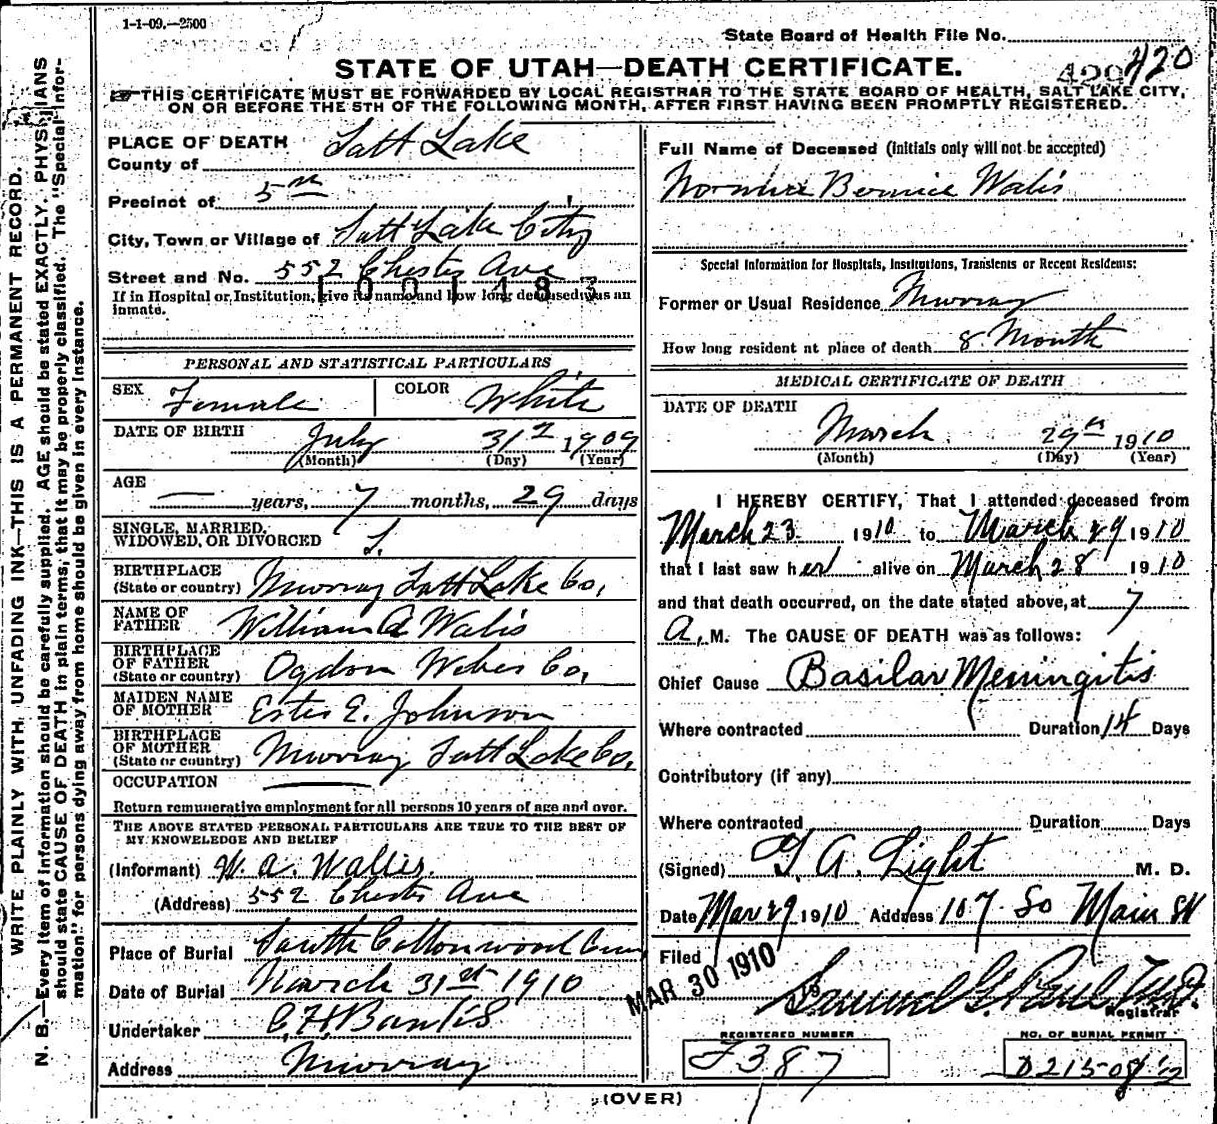 1-1-09.—2500
State Board of Health File No.
STATE OF UTAH—DEATH CERTIFICATE.
420 420
THIS CERTIFICATE MUST BE FORWARDED BY LOCAL REGISTRAR TO THE STATE BOARD OF HEALTH, SALT LAKE CITY,
ON OR BEFORE THE 5TH OF THE FOLLOWING MONTH, AFTER FIRST HAVING BEEN PROMPTLY REGISTERED.
WRITE PLAINLY WITH UNFADING INK—THIS IS A PERMANENT RECORD.
N. B.—Every item of information should be carefully supplied. AGE should be stated EXACTLY. PHYSICIANS
should state CAUSE OF DEATH in plain terms, that it may be properly classified. The "Special Infor-
mation" for persons dying away from home should be given in every instance.
PLACE OF DEATH
County of Salt Lake
Precinct of 5th
City, Town or Village of Salt Lake City
Street and No. 552 Chester Ave
1001483
If in Hospital or Institution, give its name and how long deceased was an
inmate.
PERSONAL AND STATISTICAL PARTICULARS
SEX Female COLOR White
DATE OF BIRTH July 31st 1909
(Month) (Day) (Year)
AGE — years, 7 months, 29 days
SINGLE, MARRIED,
WIDOWED, OR DIVORCED S.
BIRTHPLACE
(State or country) Murray Salt Lake Co,
NAME OF
FATHER William A Walis
BIRTHPLACE
OF FATHER
(State or country) Ogdon Weber Co,
MAIDEN NAME
OF MOTHER Ester E. Johnson
BIRTHPLACE
OF MOTHER
(State or country) Murray Salt Lake Co,
OCCUPATION —
Return remunerative employment for all persons 10 years of age and over.
THE ABOVE STATED PERSONAL PARTICULARS ARE TRUE TO THE BEST OF
MY KNOWLEDGE AND BELIEF
(Informant) W. A. Wallis.
(Address) 552 Chester Ave
Place of Burial South Cottonwood Cem
Date of Burial March 31st 1910
Undertaker
Address Murray
Full Name of Deceased (Initials only will not be accepted)
Bernice Walis
Special Information for Hospitals, Institutions, Transients or Recent Residents:
Former or Usual Residence Murray
How long resident at place of death 8. Month
MEDICAL CERTIFICATE OF DEATH
DATE OF DEATH
March 29th 1910
(Month) (Day) (Year)
I HEREBY CERTIFY, That I attended deceased from
March 23 1910 to March 29 1910
that I last saw her alive on March 28 1910
and that death occurred, on the date stated above, at 7
A. M. The CAUSE OF DEATH was as follows:
Chief Cause Basilar Meningitis
Where contracted Duration 14 Days
Contributory (if any)
Where contracted Duration Days
(Signed) A. Light M. D.
Date Mar 29 1910 Address 107 So Main St
Filed MAR 30 1910 19
Samuel G. Paul M.D.
Registrar
REGISTERED NUMBER
F387
NO. OF BURIAL PERMIT
(OVER)